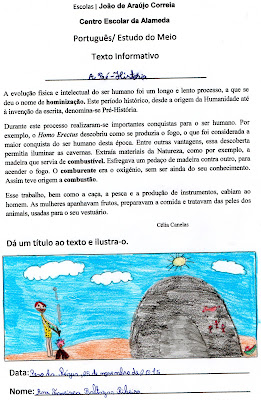 Escolas | João de Araújo Correia
Centro Escolar da Alameda
Português/ Estudo do Meio
Texto Informativo
A Pré-História
A evolução física e intelectual do ser humano foi um longo e lento processo, a que se
deu o nome de hominização. Este período histórico, desde a origem da Humanidade até
à invenção da escrita, denomina-se Pré-História.
Durante este processo realizaram-se importantes conquistas para o ser humano. Por
exemplo, o Homo Erectus descobriu como se produzia o fogo, o que foi considerada a
maior conquista do ser humano desta época. Entre outras vantagens, essa descoberta
permitia iluminar as cavernas. Extraía materiais da Natureza, como por exemplo, a
madeira que servia de combustível. Esfregava um pedaço de madeira contra outro, para
acender o fogo. O comburente era o oxigénio, sem ser ainda do seu conhecimento.
Assim teve origem a combustão.
Esse trabalho, bem como a caça, a pesca e a produção de instrumentos, cabiam ao
homem. As mulheres apanhavam frutos, preparavam a comida e tratavam das peles dos
animais, usadas para o seu vestuário.
Célia Canelas
Dá um título ao texto e ilustra-o.
Data: Peso da Régua, de novembro de
Nome: Ana Francisca Ribeiro